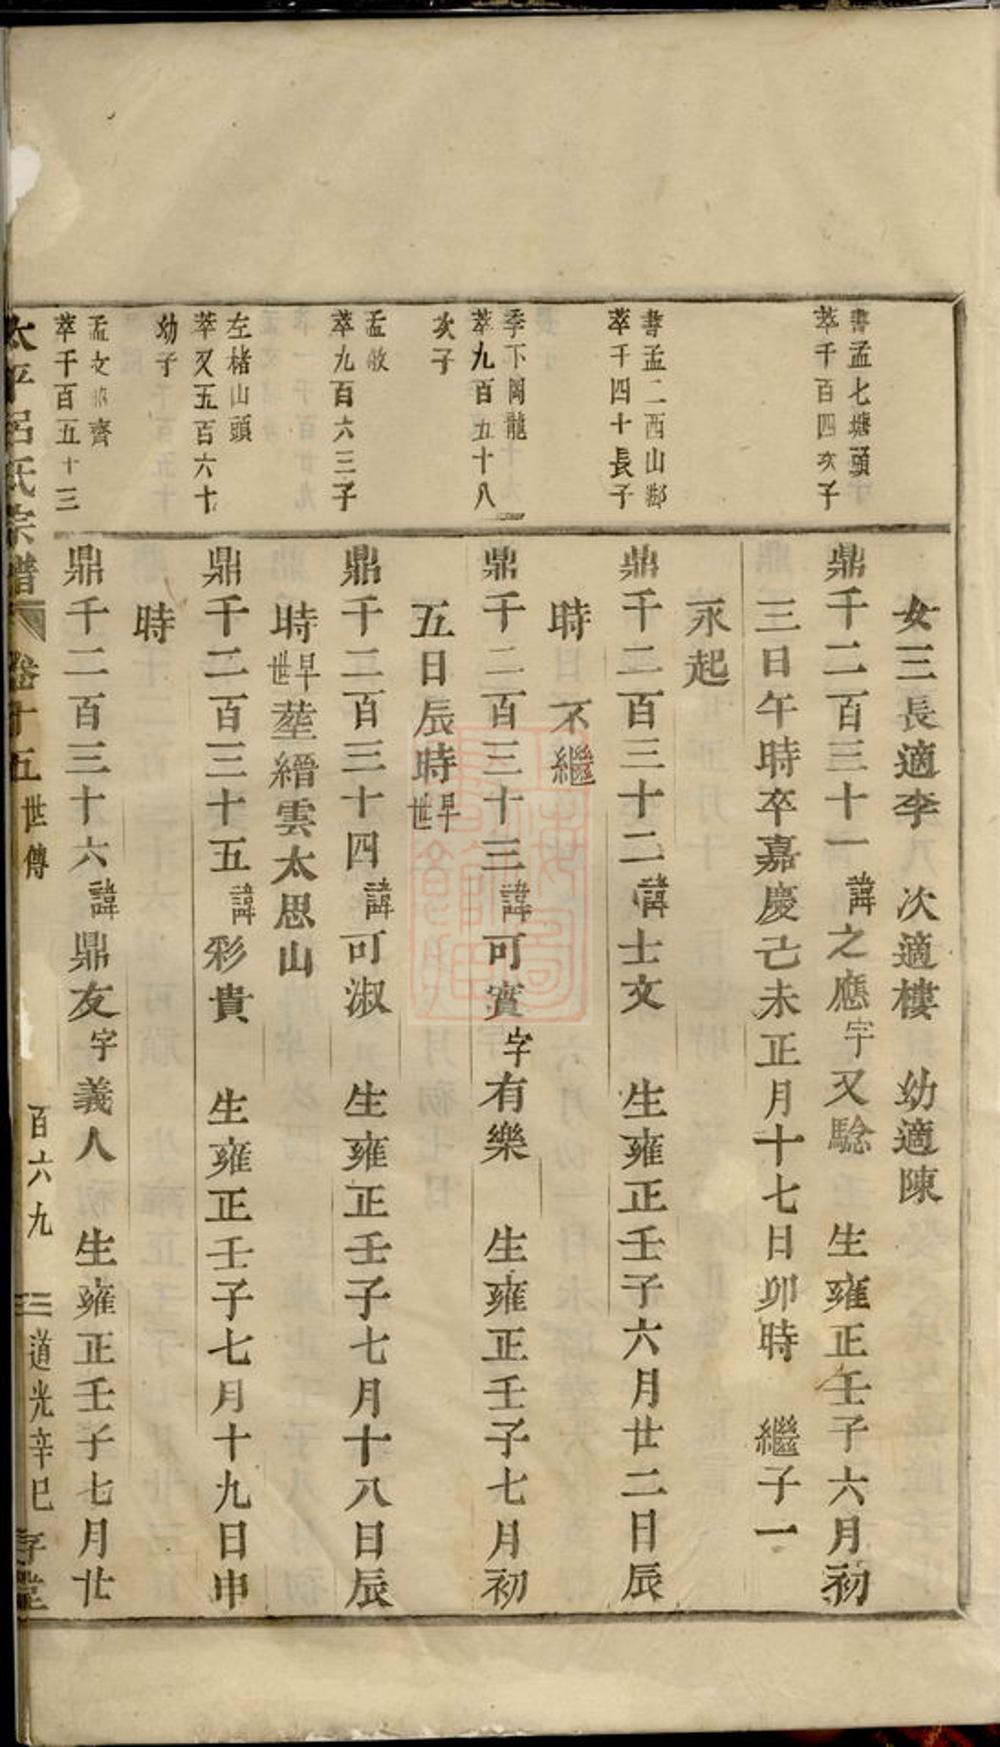 女三長適李　次適樓　幼適陳
書孟七塘頭
萃千百四次子
鼎千二百三十一諱之應字又騐　生雍正壬子六月初
三日午時卒嘉慶己未正月十七日卯時　繼子一
永起
書孟二西山鄰
萃千四十長子
鼎千二百三十二諱士文　生雍正壬子六月廿二日辰
時　不繼
季下岡龍
萃九百五十八
次子
鼎千二百三十三諱可賓字有樂　生雍正壬子七月初
五日辰時早世
孟敬
萃九百六三子
鼎千二百三十四諱可淑　生雍正壬子七月十八日辰
時早世葬縉雲太思山
左楮山頭
萃又五百六十
幼子
鼎千二百三十五諱彩貴　生雍正壬子七月十九日申
時
萃千百五十三
鼎千二百三十六諱鼎友字義人　生雍正壬子七月廿
太平呂氏宗譜　卷十五世傳　百六九　道光辛巳